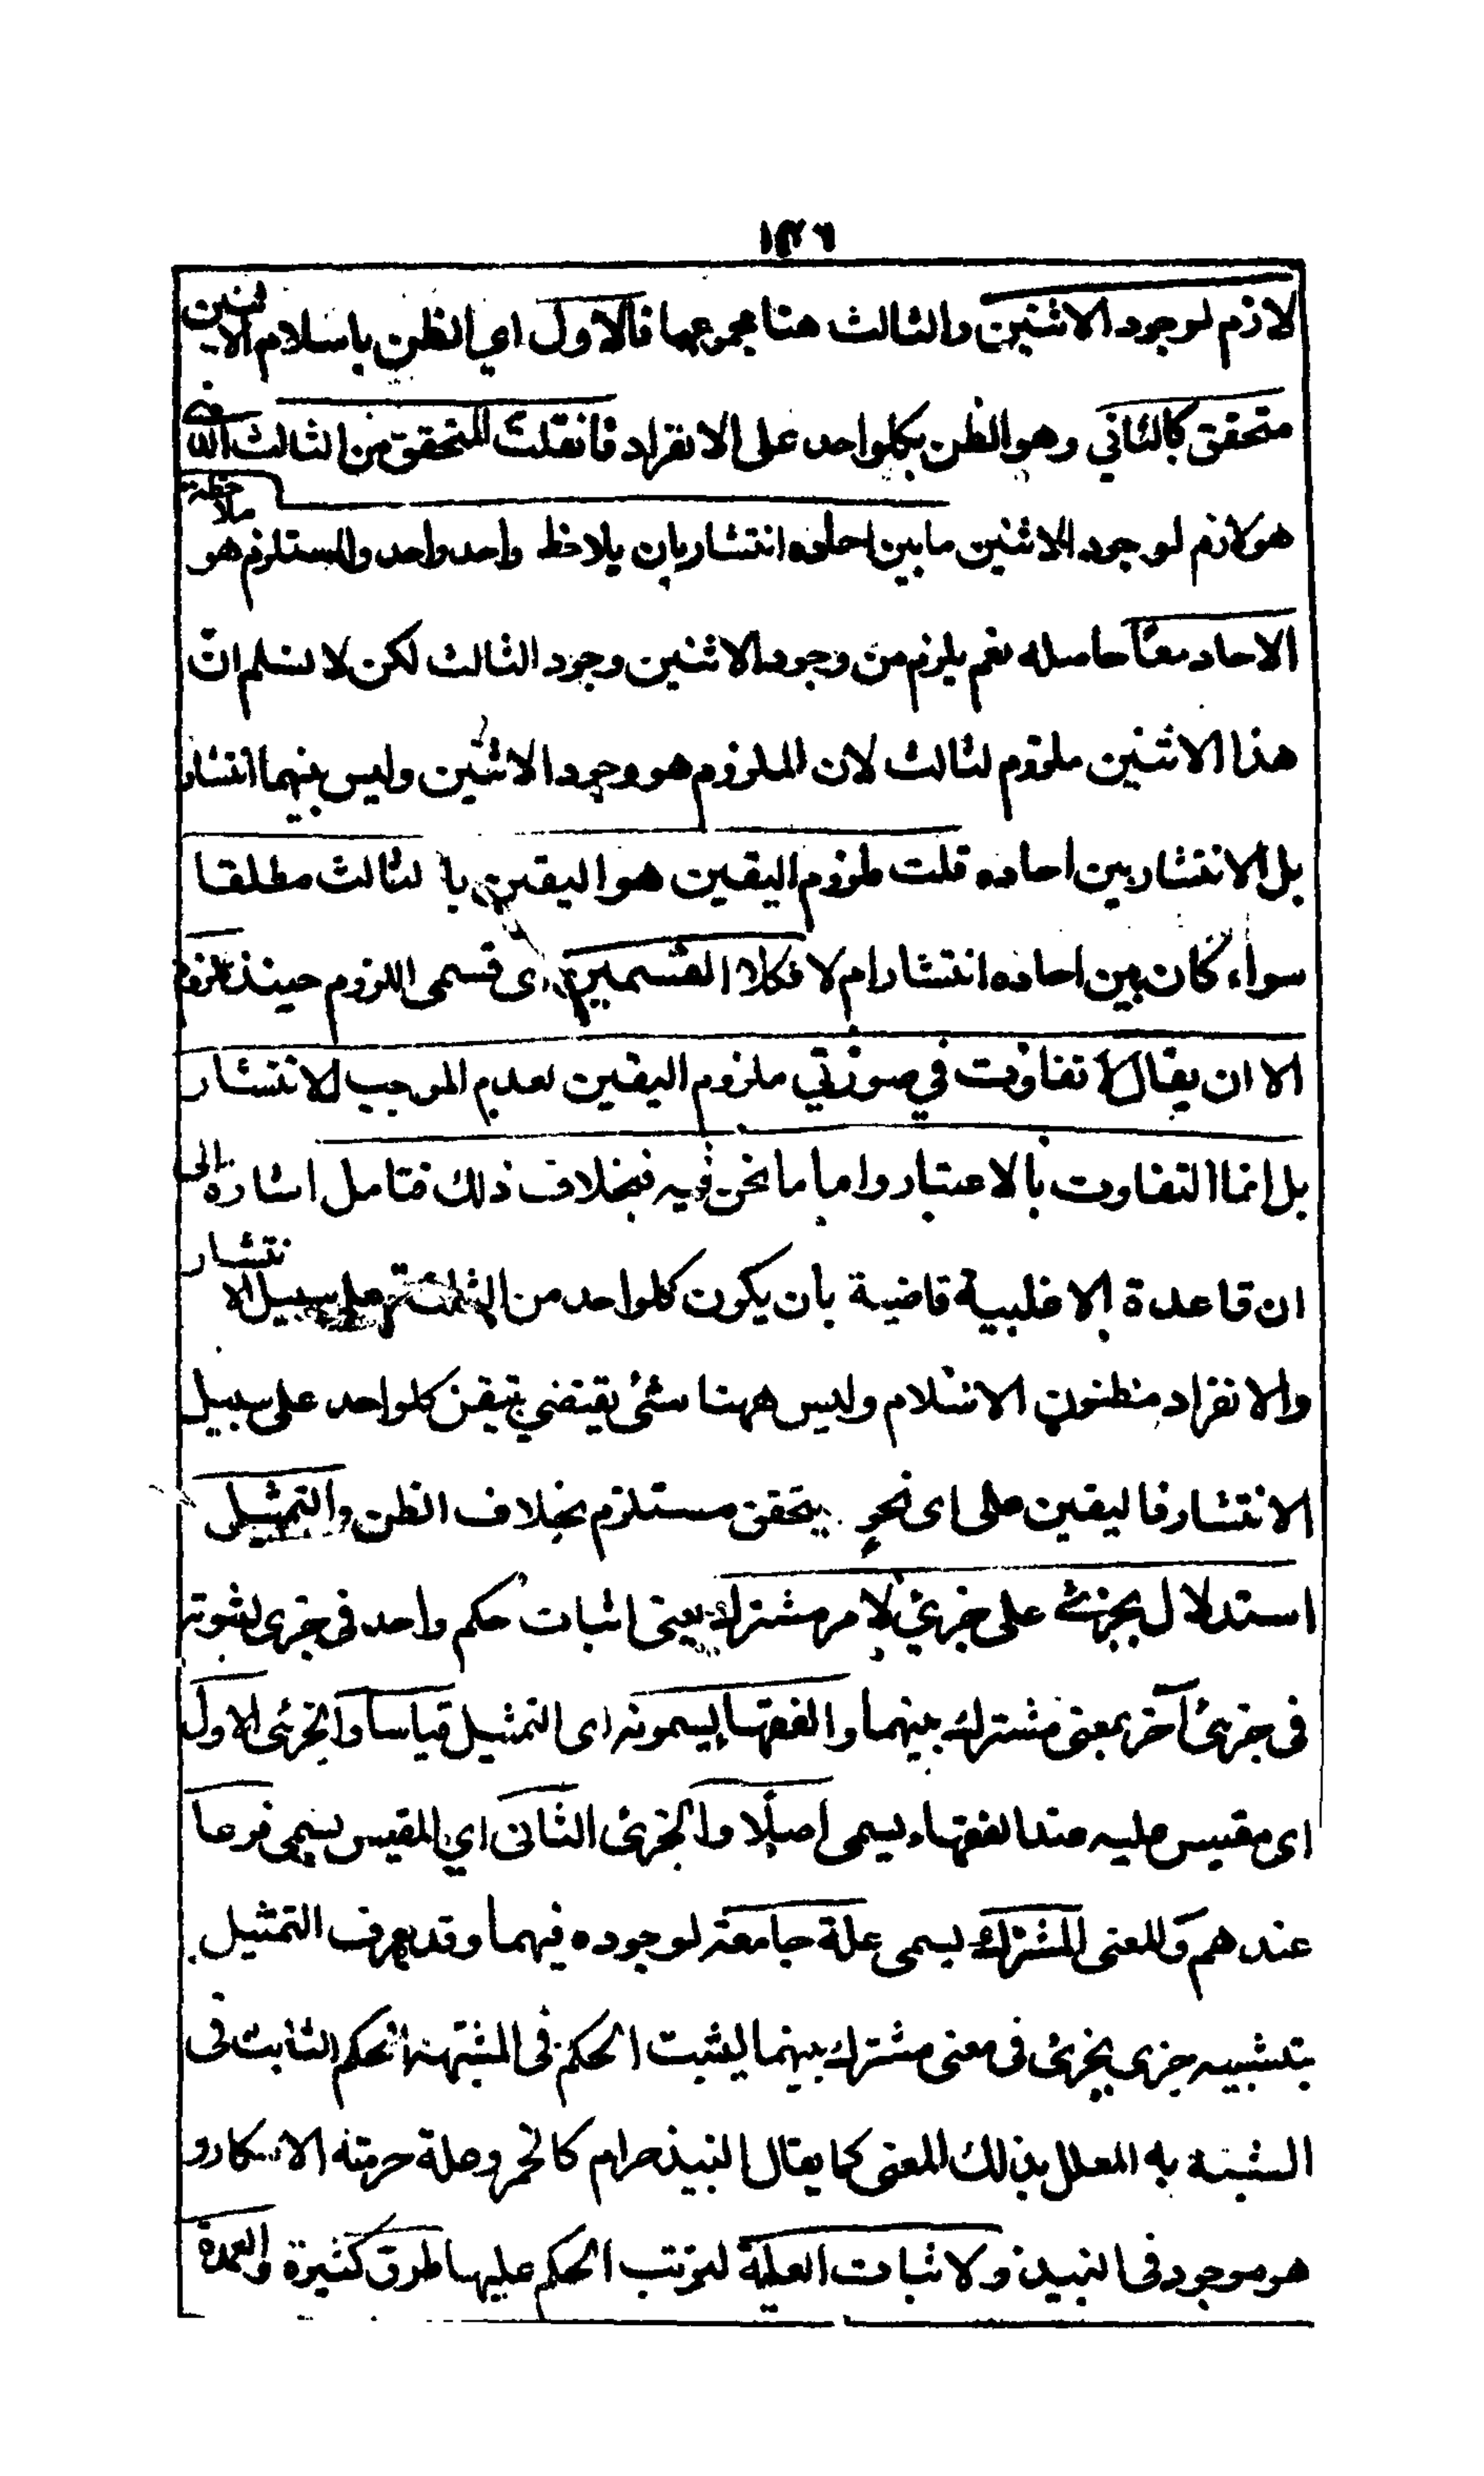 ١٢٦
لازم لوجود الاثنين والثالث هنا مجموعهما فالاول اي الظن باسلام الاثنين
متحقق كالثاني وهو الظن بكلواحد على الانفراد فانقلت المتحقق من الثالث الذى
هو لازم لوجود الاثنين ما بين احاده انتشار بان يلاحظ واحد واحد والمستلزم هو ملاحظة
الاحاد معًا حاصله نعم يلزم من وجود الاثنين وجود الثالث لكن لا نسلم انّ
هذا الاثنين ملزوم لثالث لان الملزوم هو وجود الاثنين وليس بينهما انتشار
بل الانتشار بين احاده قلت ملزوم اليقين هو اليقين با لثالث مطلقا
سواء كان بين احاده انتشارا ام لا فكلا القسمين اى قسمى اللزوم حينئذ
الا ان يقال لا تفاوت في صورتي ملزوم اليقين لعدم الموجب للانتشار
بل انما التفاوت بالاعتبار واما ما نحن فيه فبخلاف ذلك فتامل اشارة الى
ان قاعدة الاغلبية قاضية بان يكون كلواحد من الثلثة على سبيل الانتشار
والانفراد مظنون الاسلام وليس ههنا شئ يقتضي تيقن كلواحد على سبيل
الانتشار فاليقين على اى نحوٍ يتحقق مستلزم بخلاف الظن والتمثيل
استدلال بجزئے على جزئي لامر مشترك يعنى اثبات حكم واحد فى جزى لثبوته
فى جزئ آخر بمعنى مشترك بينهما والفقهاء يسمونه اى التمثيل قياسا والجزئى الاول
اى مقيس عليه عند الفقهاء يسمى اصلًا والجزئى الثانى اي المقيس يسمى فرعا
عندهم والمعنى المشترك يسمى علة جامعة لوجوده فيهما وقد يعرف التمثيل
بتشبيه جزى بجزئى فى معنى مشترك بينهما ليثبت الحكم فى المشبه الحكم الثابت فى
المشبه به المعلل بذلك المعنى كما يقال النبيذ حرام كالخمر وعلة حرمته الاسكار و
هو موجود فى النبيذ ولاثبات العلية لترتب الحكم عليها طرق كثيرة والعمدة